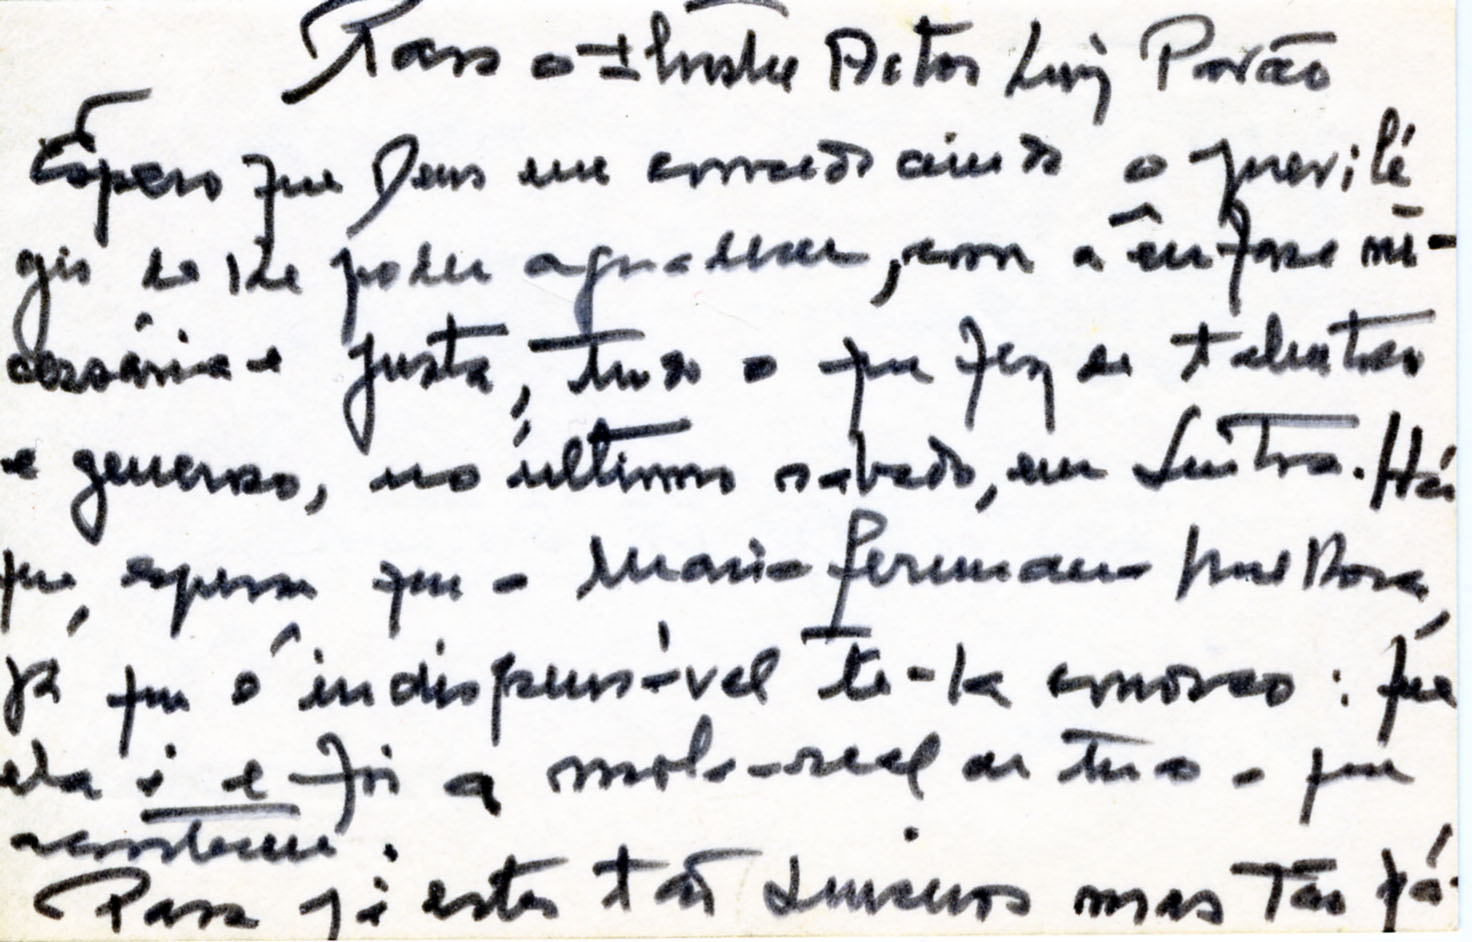 Para o Ilustre Actor Luiz Pavão
Espero que Deus me conceda ainda o previlé
gio de lhe poder agradecer, com a ênfase ne-
cessária e justa, tudo o que fez de talentoso
e generoso, no último sabado, em Sintra. Há
que, esperar que a Maria Germana melhore,
já que é indispensável tê-la conosco: que
ela é e foi a mola-real de tudo o que
aconteceu.
Para já estes tão sinceros mas tão pá-